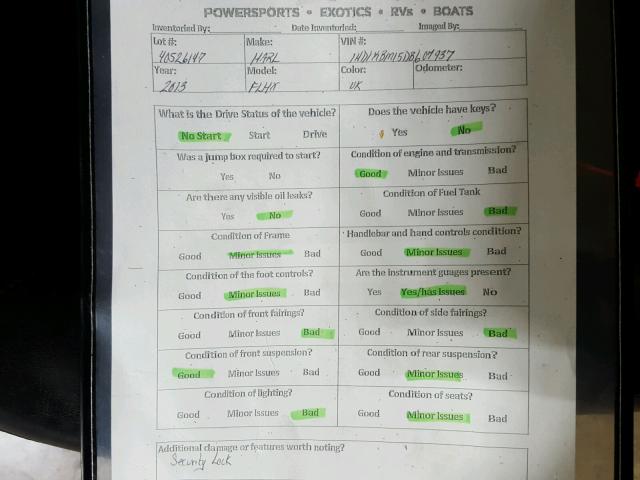 POWERSPORTS • EXOTICS • RVs • BOATS
Inventoried By: Date Inventoried: Imaged By:
Lot #: Make: VIN #:
40526147 HARL
Year: Model: Color: Odometer:
2013 FLHX UK
What is the Drive Status of the vehicle? Does the vehicle have keys?
No Start Start Drive Yes No
Was a jump box required to start? Condition of engine and transmission?
Yes No Good Minor Issues Bad
Are there any visible oil leaks? Condition of Fuel Tank
Yes No Good Minor Issues Bad
Condition of Frame Handlebar and hand controls condition?
Good Minor Issues Bad Good Minor Issues Bad
Condition of the foot controls? Are the instrument guages present?
Good Minor Issues Bad Yes Yes/has Issues No
Condition of front fairings? Condition of side fairings?
Good Minor Issues Bad Good Minor Issues Bad
Condition of front suspension? Condition of rear suspension?
Good Minor Issues Bad Good Minor Issues Bad
Condition of lighting? Condition of seats?
Good Minor Issues Bad Good Minor Issues Bad
Additional damage or features worth noting?
Security Lock